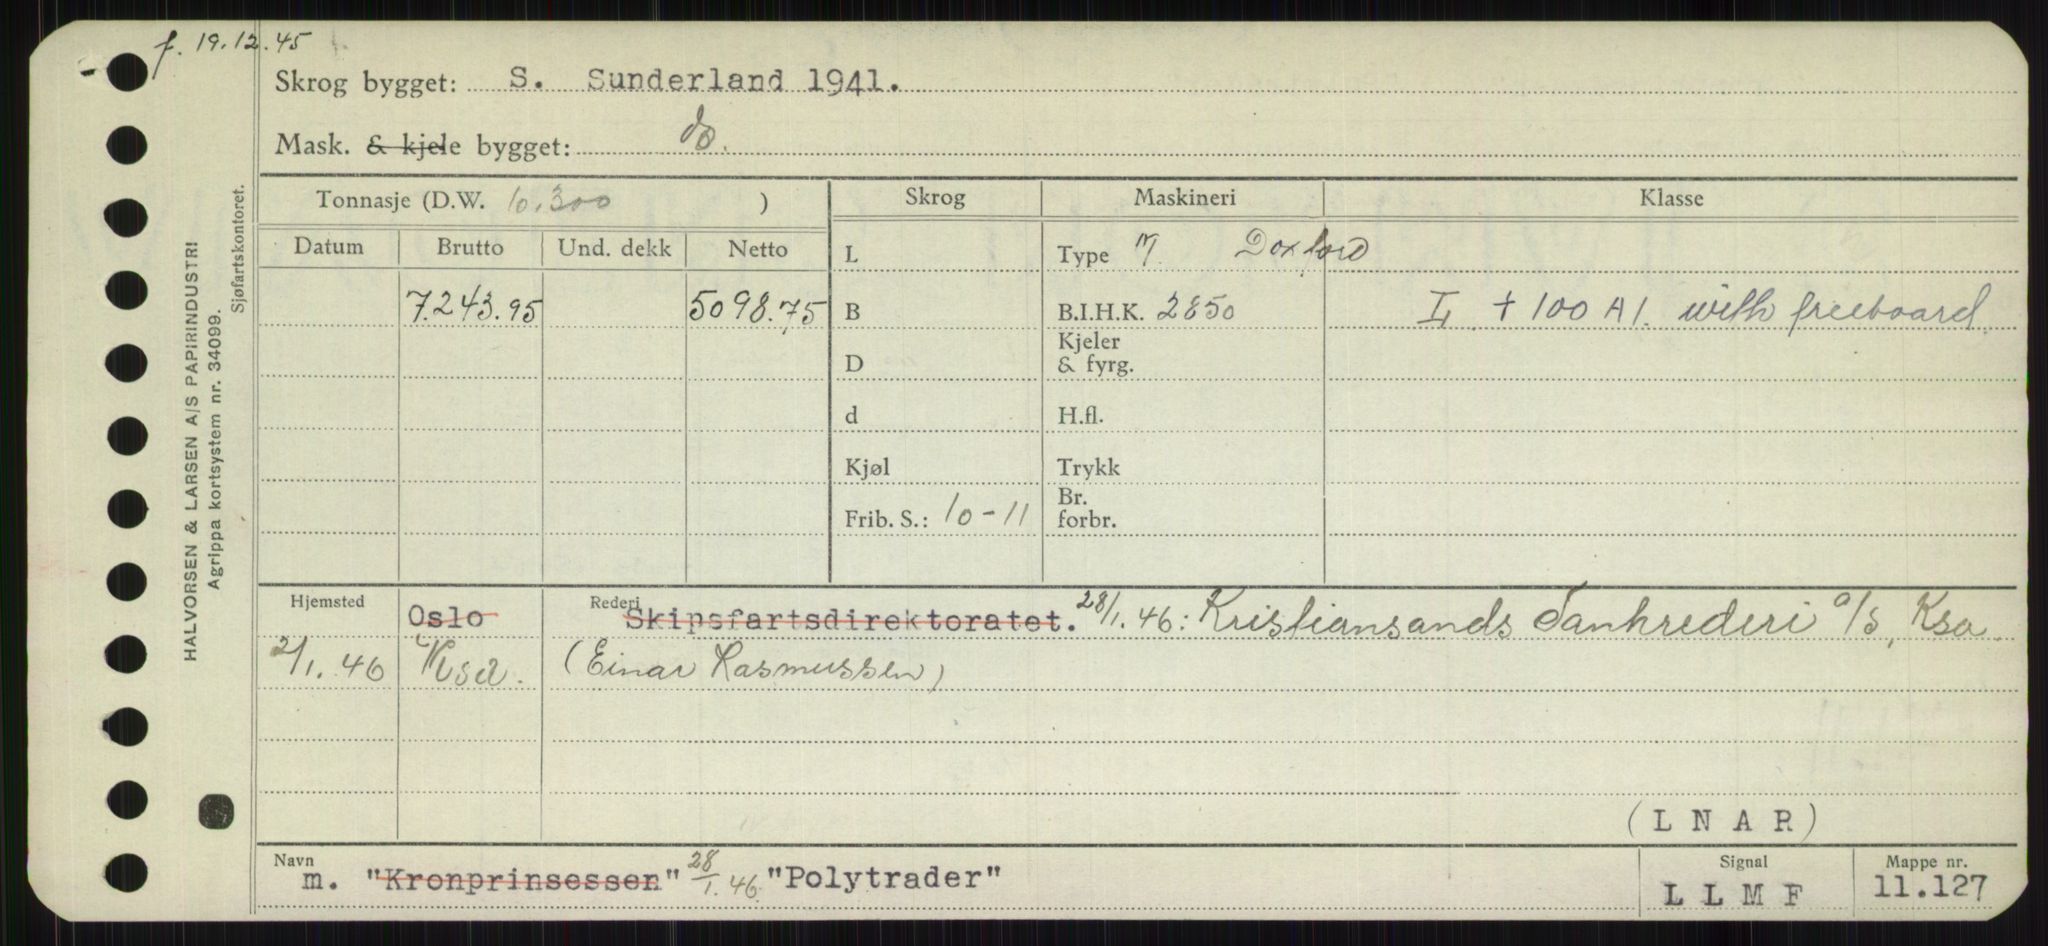 f. 19.12.45
Skrog bygget: S. Sunderland 1941.
Mask. & kjele bygget: do.
Tonnasje (D.W. 10.300 )
Skrog
Maskineri
Klasse
Datum Brutto Und. dekk Netto
L
Type M Doxford
7.243.95 5098.75
B
B.I.H.K. 2850
L + 100 A 1. with freeboard.
D
Kjeler
& fyrg.
d
H.fl.
Kjøl
Trykk
Frib. S.: 10-11
Br.
forbr.
Hjemsted Oslo
Rederi Skipsfartsdirektoratet. 28/1.46: Kristiansands Tankrederi a/s, Ksa.
2/1.46 Krsd. (Einar Rasmussen)
(LNAR)
Navn
m. "Kronprinsessen" 28/1.46. "Polytrader"
Signal
LLMF
Mappe nr.
11.127
HALVORSEN & LARSEN A/S PAPIRINDUSTRI
Agrippa kortsystem nr. 34099.
Sjøfartskontoret.